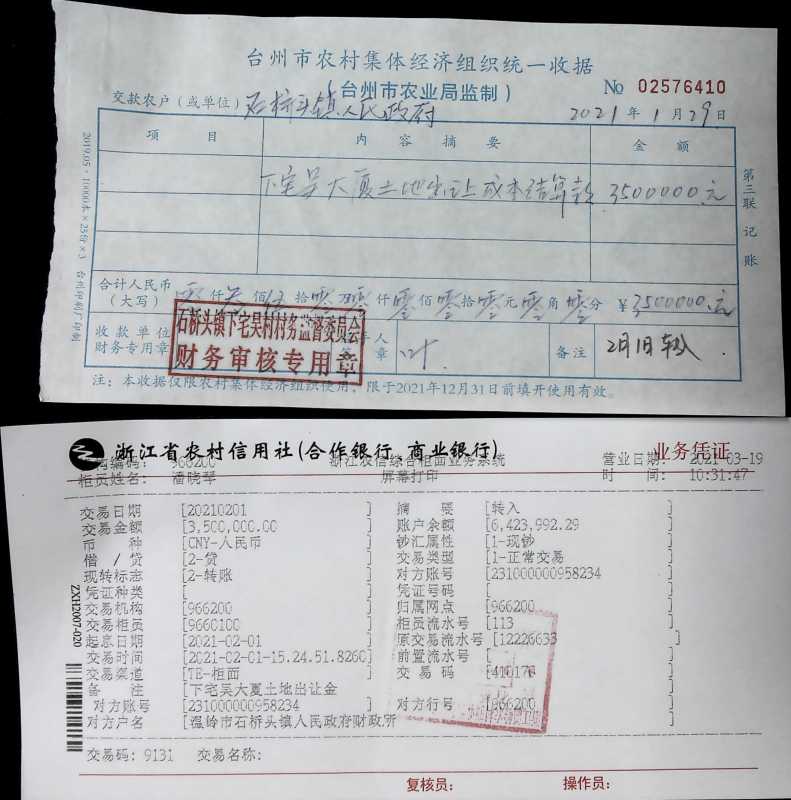 台州市农村集体经济组织统一收据
(台州市农业局监制)
No 02576410
交款农户(或单位) 石桥头镇人民政府
2021 年 1 月 29 日
项 目 内 容 摘 要 金 额
下宅吴大厦土地出让成本结算款 3500000.元
合计人民币
(大写) 零 仟 叁 佰 伍 拾 零 万 零 仟 零 佰 零 拾 零 元 零 角 零 分 ¥3500000.元
收款单位
财务专用章
石桥头镇下宅吴村村务监督委员会
财务审核专用章
人
章
叶
备注 2月1日转入
注:本收据仅限农村集体经济组织使用,限于2021年12月31日前填开使用有效。
第三联 记账
2019.05·10000本×25份×3 台州印刷厂印制
浙江省农村信用社(合作银行 商业银行)
业务凭证
机构编码: 966200 浙江农信综合柜面业务系统 营业日期: 2021-03-19
柜员姓名: 潘晓琴 屏幕打印 时 间: 10:31:47
交易日期 [20210201 ] 摘 要 [转入 ]
交易金额 [3,500,000.00 ] 账户余额 [6,423,992.29 ]
币 种 [CNY-人民币 ] 钞汇属性 [1-现钞 ]
借 / 贷 [2-贷 ] 交易类型 [1-正常交易 ]
现转标志 [2-转账 ] 对方账号 [231000000958234 ]
凭证种类 [ ] 凭证号码 [ ]
交易机构 [966200 ] 归属网点 [966200 ]
交易柜员 [9660100 ] 柜员流水号 [113 ]
起息日期 [2021-02-01 ] 原交易流水号 [12226633 ]
交易时间 [2021-02-01-15.24.51.8260] 前置流水号 [ ]
交易渠道 [TE-柜面 ] 交 易 码 [410170 ]
备 注 [下宅吴大厦土地出让金 ]
对方账号 [231000000958234 ] 对方行号 [966200 ]
对方户名 [温岭市石桥头镇人民政府财政所 ]
交易码: 9131 交易名称:
复核员: 操作员:
ZXH2007-020